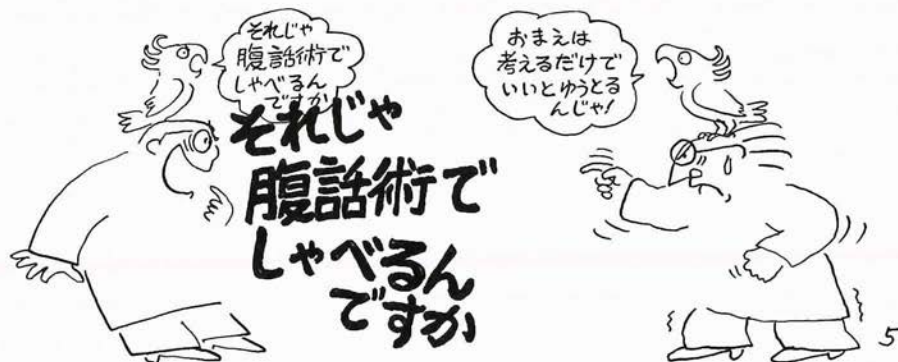 それじゃ
腹話術で
しゃべるん
ですか
それじゃ
腹話術で
しゃべるん
ですか
おまえは
考えるだけで
いいとゆうとる
んじゃ!
5